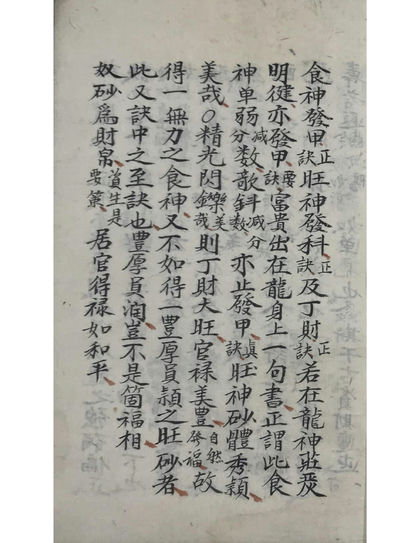 食神發甲正訣旺神發科正訣及丁財正訣若在龍神莊
明健亦發甲要訣富貴出在龍身上一句書正謂此食
神单弱减分数欹斜减分数亦止發甲真訣旺神砂體秀穎
美哉○精光閃鑠美哉則丁財大旺官禄美豊自然發福故
得一無力之食神又不如得一豊厚員穎之旺砂者
此又訣中之至訣也豊厚員润豈不是箇福相
奴砂爲財帛資生是要第居官得禄如和平